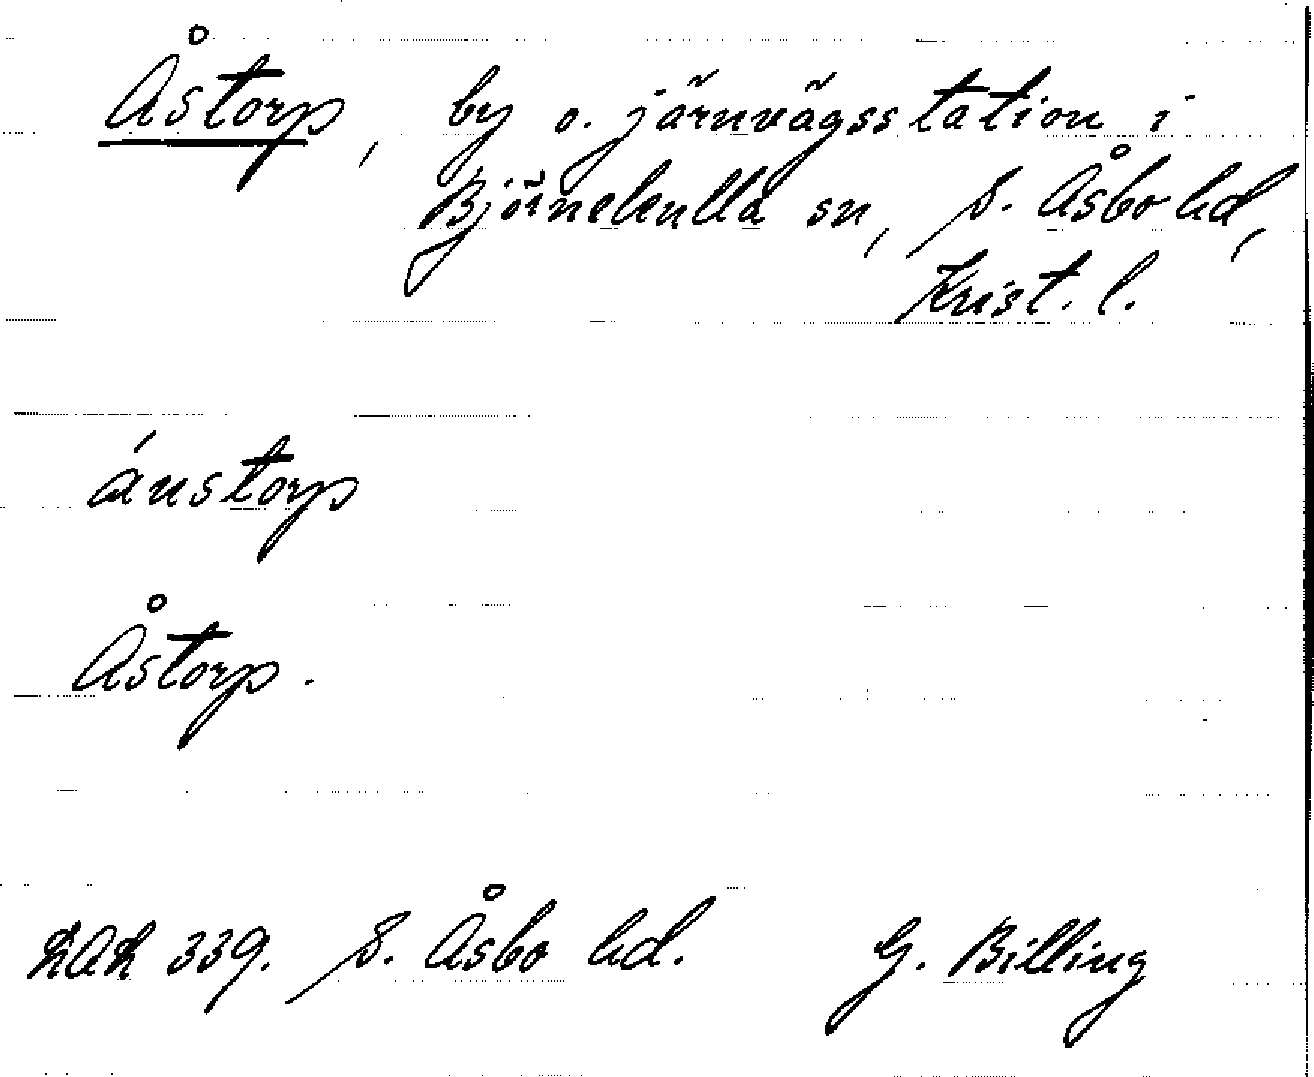 Åstorp, by o. järnvägsstation i
Björnekulla sn, S. Åsbo hd,
Krist. l.
áustorp
Åstorp.
LAL 339. S. Åsbo hd. G. Billing